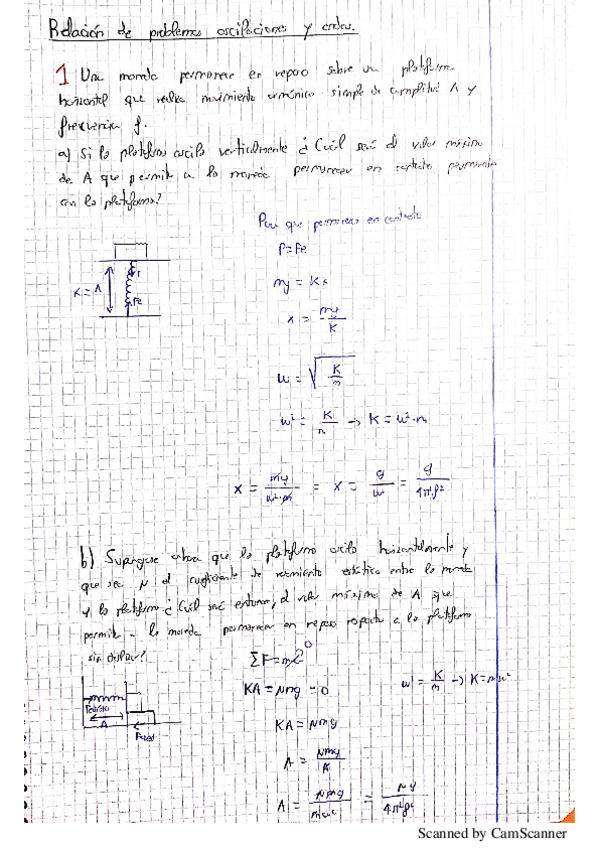 Relación de problemas oscilaciones y ondas.
1 Una moneda permanece en reposo sobre una plataforma
horizontal que realiza movimiento armónico simple de amplitud A y
frecuencia f.
a) Si la plataforma oscila verticalmente ¿Cuál será el valor máximo
de A que permite a la moneda permanecer en contacto permanente
con la plataforma?
Para que permanezca en contacto
P=Fe
mg = Kx
x = mg/K
x=A
Fe
ω = √(K/m)
ω² = K/m → K = ω²·m
x = mg/ω²·m = x = g/ω² = g/4π²f²
b) Supongase ahora que la plataforma oscila horizontalmente y
que sea μ el coeficiente de rozamiento estático entre la moneda
y la plataforma ¿Cuál será entonces, el valor máximo de A que
permite a la moneda permanecer en reposo respecto a la plataforma
sin deslizar?
ΣF=ma⁰
KA = μmg = 0
ω² = K/m → K=mω²
KA = μmg
A
A = μmg/K
A = μmg/mω² = μg/4π²f²
Scanned by CamScanner